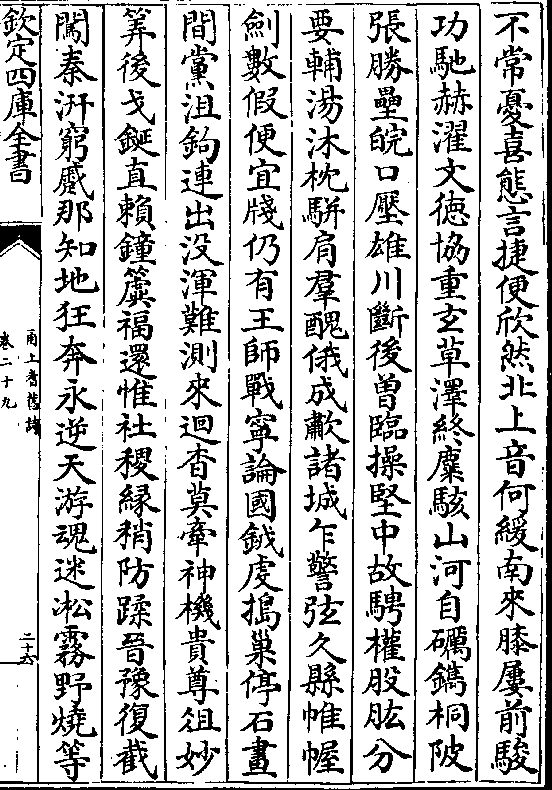 不常憂喜態言捷便欣然北上音何緩南來膝屢前駿
功馳赫濯文徳協重玄草澤終麋駭山河自礪鐫桐陂
張勝壘皖口壓雄川斷後曽臨操堅中故騁權股肱分
要輔湯沐枕駢肩羣醜俄成歗諸城乍警弦久縣帷幄
劍數假便宜牋仍有王師戰寜論國鉞虔搗巢停石畫
間黨沮鉤連出没渾難測來迴杳莫牽神機貴尊俎妙
筭後戈鋋直賴鐘簴福還惟社稷縁稍防蹂晉豫復截
闖秦汧窮蹙那知地狂奔永逆天游魂迷淞霧野燒等
欽定四庫全書
甬上耆舊詩
卷二十九
二十六